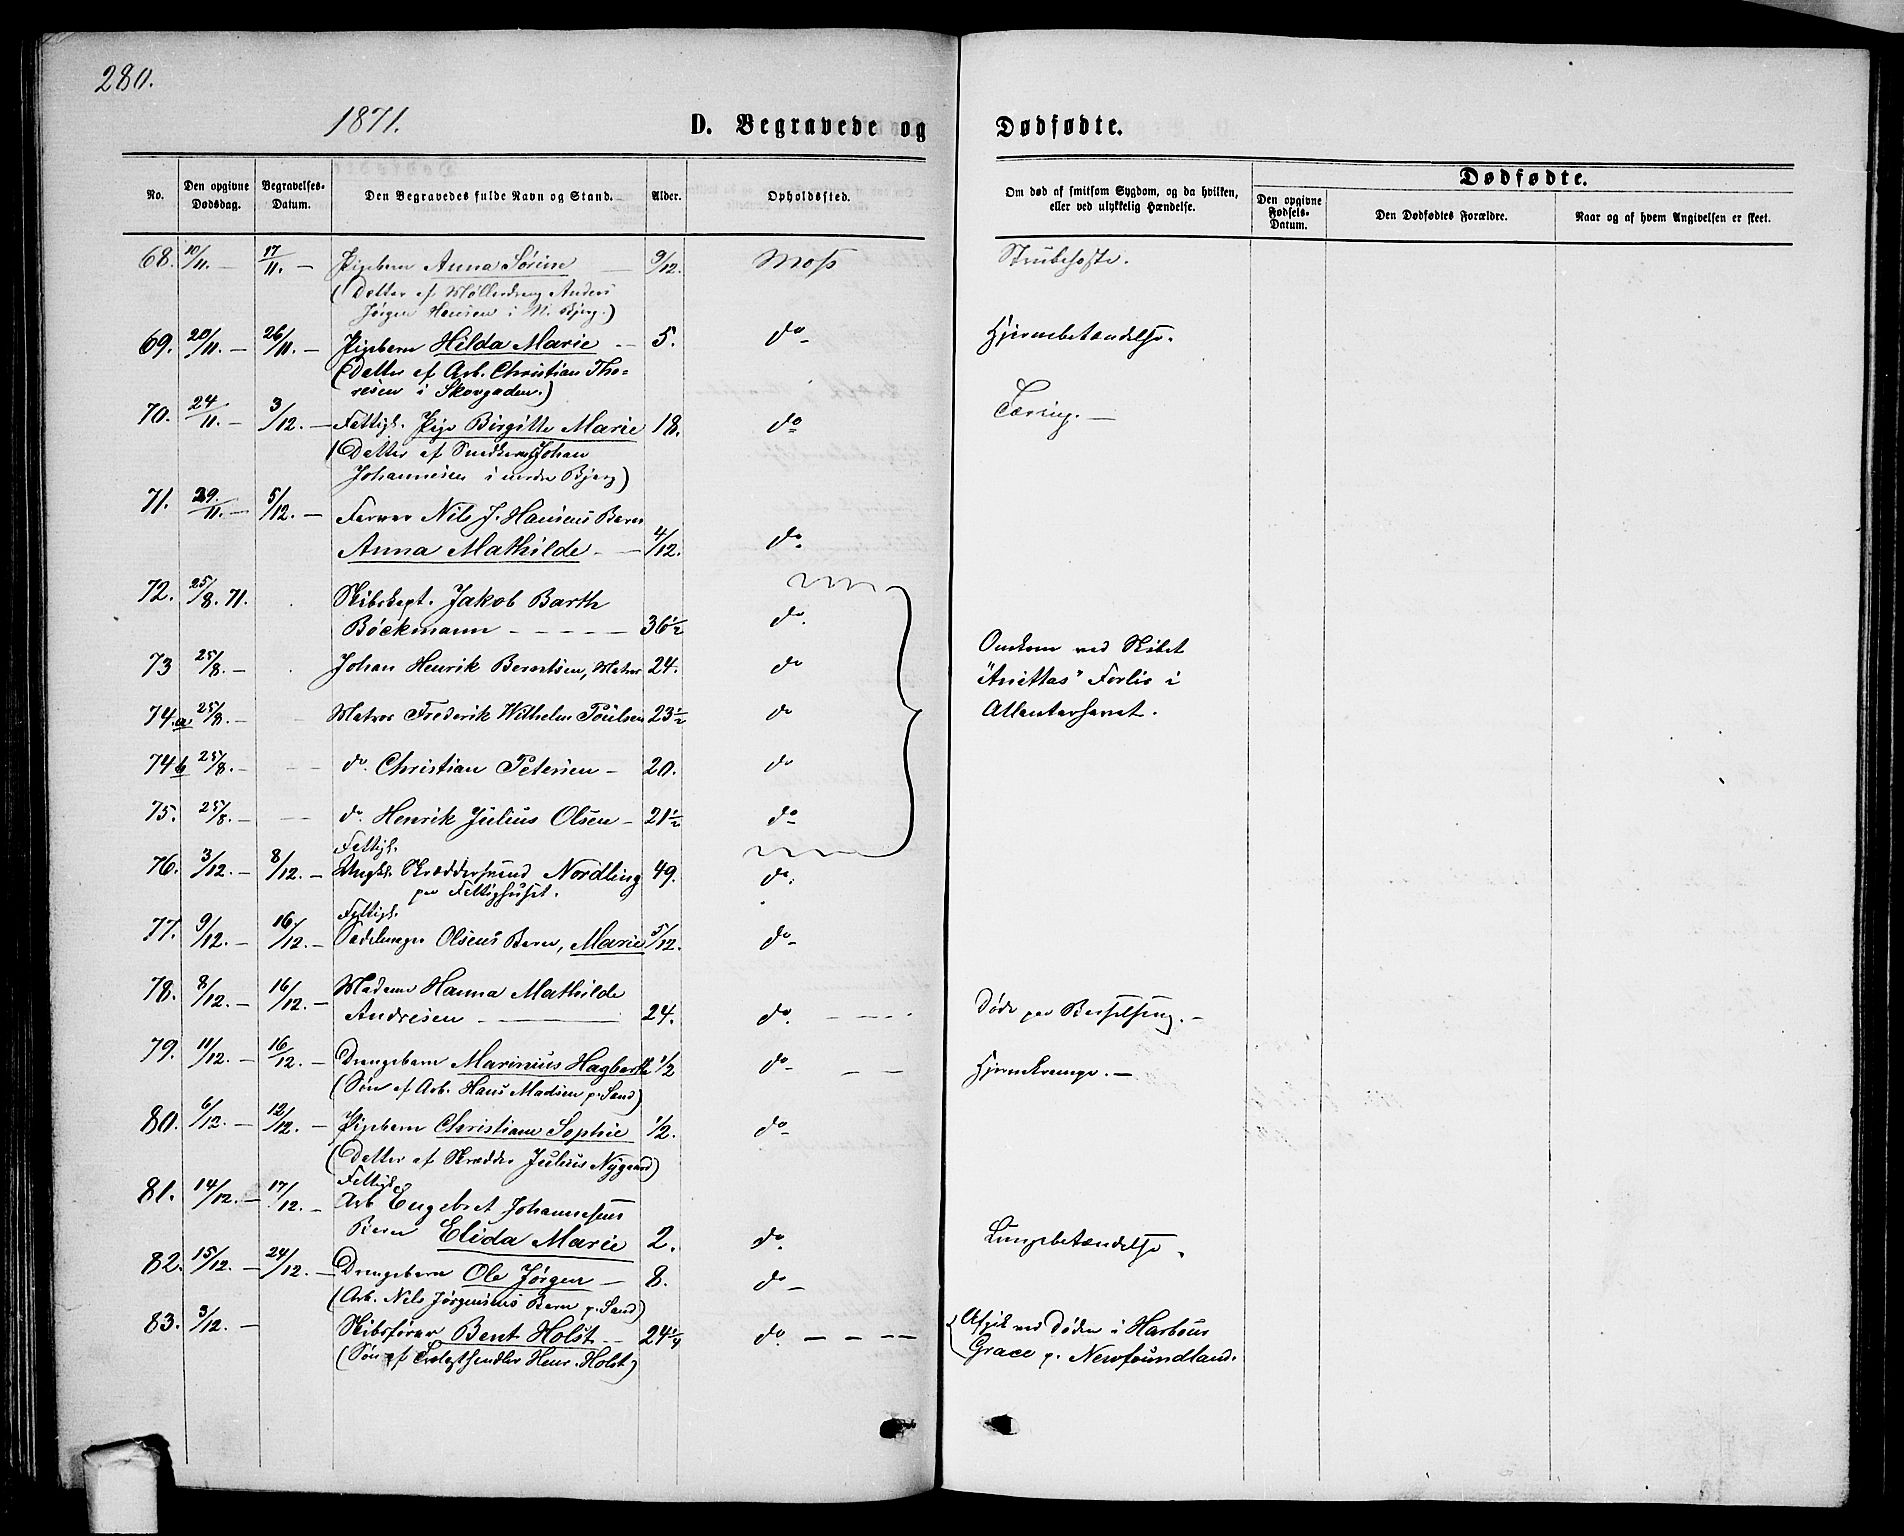 280.
1871.
D. Begravede og Dødfødte.
No. Den opgivne Dødsdag. Begravelses-Datum. Den Begravedes fulde Navn og Stand. Alder. Opholdssted. Om død af smitsom Sygdom, og da hvilken, eller ved ulykkelig Hændelse. Dødfødte.
Den opgivne Fødsels-Datum. Den Dødfødtes Forældre. Naar og af hvem Angivelsen er skeet.
68. 10/11. — 17/11. — Pigebarn Anna Sørine — 9/12. Moss Strubehoste.
(Datter af Møllerdreng Anders
Jørgen Hansen i N. Bjerg.)
69. 20/11. — 26/11. — Pigebarn Hilda Marie — 5. do — Hjernebetændelse.
(Datter af Arb. Christian Tho-
resen i Skovgaden.)
70. 24/11. — 3/12. — Fattigl. Pige Birgitte Marie 18. do Tæring. —
(Datter af Snedker Johan
Johannesen i nedre Bjerg)
71. 29/11. — 5/12. — Farver Nils J. Hansens Barn
Anna Mathilde — 4/12. do.
72. 25/8. 71. Skibskapt. Jakob Barth
Böckmann — 36 1/2 do.
Omkom ved Skibet
73 25/8. — Johan Henrik Berntsen, Matros 24. do
"Anittas" Forlis i
74.a. 25/8. — Matros Frederik Wilhelm Poulsen 23 1/2 do
Atlanterhavet.
74 b 25/8. — do. Christian Petersen — 20. do
75. 25/8. — do. Henrik Julius Olsen — 21 1/2 do
Fattigl.
76. 3/12. — 8/12. — Ungk. Skræddersvend Nordling 49. do.
paa Fattighuset.
Fattigl.
77. 9/12. — 16/12. — Sadelmager Olsens Barn, Marie 5/12. do —
78. 8/12. — 16/12. — Madame Hanna Mathilde
Andresen — 24. do. Døde paa Barselseng. —
79. 11/12. — 16/12. — Drengebarn Marinius Hagbarth 1/2 do — Hjernekrampe. —
(Søn af Arb. Hans Madsen p. Sand)
80. 6/12. — 12/12. — Pigebarn Christiane Sophie 1/2. do —
(Datter af Skrædder Julius Nygaard)
Fattigl.
81. 14/12. — 17/12. — Arb Engebret Johannesens
Barn Elida Marie 2. do. Lungebetændelse.
82. 15/12. — 24/12. — Drengebarn Ole Jørgen — 8. do —
(Arb. Nils Jørgensens Barn p. Sand)
83. 3/12. — Skibsfører Bent Holst — 24 1/4 do. Afgik ved Døden i Harbour
(Søn af Trælasthandler Henr. Holst) Grace p. Newfoundland.